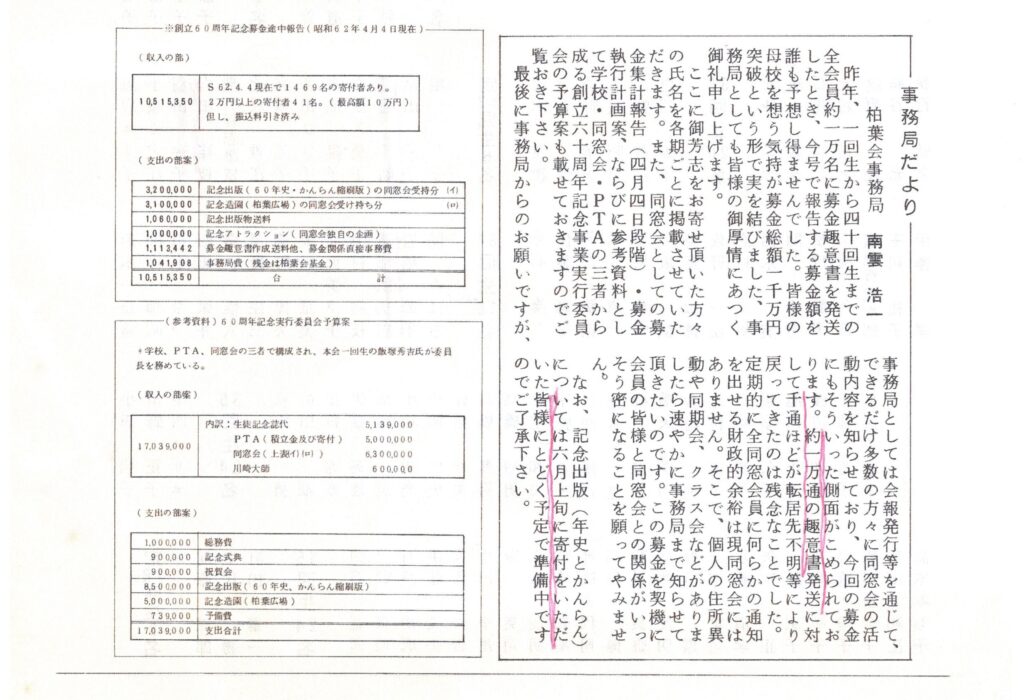 事務局だより
柏葉会事務局　南雲　浩一
昨年、一回生から四十回生までの
全会員約一万名に募金趣意書を発送
したとき、今号で報告する募金額を
誰も予想し得ませんでした。皆様の
母校を想う気持が募金総額一千万円
突破という形で実を結びました、事
務局としても皆様の御厚情にあつく
御礼申し上げます。
ここに御芳志をお寄せ頂いた方々
の氏名を各期ごとに掲載させていた
だきます。また、同窓会としての募
金集計報告（四月四日段階）・募金
執行計画案、ならびに参考資料とし
て学校・同窓会・ＰＴＡの三者から
成る創立六十周年記念事業実行委員
会の予算案も載せておきますのでご
覧おき下さい。
最後に事務局からのお願いですが、
事務局としては会報発行等を通じて、
できるだけ多数の方々に同窓会の活
動内容を知らせており、今回の募金
にもそういった側面がこめられてお
ります。約一万通の趣意書発送に対
して千通ほどが転居先不明等により
戻ってきたのは残念なことでした。
定期的に全同窓会員に何らかの通知
を出せる財政的余裕は現同窓会には
ありません。そこで、個人の住所異
動や同期会、クラス会などがありま
したら速やかに事務局まで知らせて
頂きたいのです。この募金を契機に
会員の皆様と同窓会との関係がいっ
そう密になることを願ってやみませ
ん。
なお、記念出版（年史とかんらん）
については六月上旬に寄付をいただ
いた皆様にとどく予定で準備中です
のでご了承下さい。
※創立６０周年記念募金途中報告（昭和６２年４月４日現在）
（収入の部）
10,515,350
Ｓ62.4.4現在で１４６９名の寄付者あり。
２万円以上の寄付者４１名。（最高額１０万円）
但し、振込料引き済み
（支出の部案）
3,200,000　記念出版（６０年史・かんらん縮刷版）の同窓会受持分　(イ)
3,100,000　記念造園（柏葉広場）の同窓会受け持ち分　(ロ)
1,060,000　記念出版物送料
1,000,000　記念アトラクション（同窓会独自の企画）
1,113,442　募金趣意書作成送料他、募金関係直接事務費
1,041,908　事務局費（残金は柏葉会基金）
10,515,350　合　計
（参考資料）６０周年記念実行委員会予算案
＊学校、ＰＴＡ、同窓会の三者で構成され、本会一回生の飯塚秀吉氏が委員
長を務めている。
（収入の部案）
17,039,000
内訳：生徒記念誌代　5,139,000
ＰＴＡ（積立金及び寄付）　5,000,000
同窓会（上表(イ)(ロ)）　6,300,000
川崎大師　600,000
（支出の部案）
1,000,000　総務費
900,000　記念式典
900,000　祝賀会
8,500,000　記念出版（６０年史、かんらん縮刷版）
5,000,000　記念造園（柏葉広場）
739,000　予備費
17,039,000　支出合計